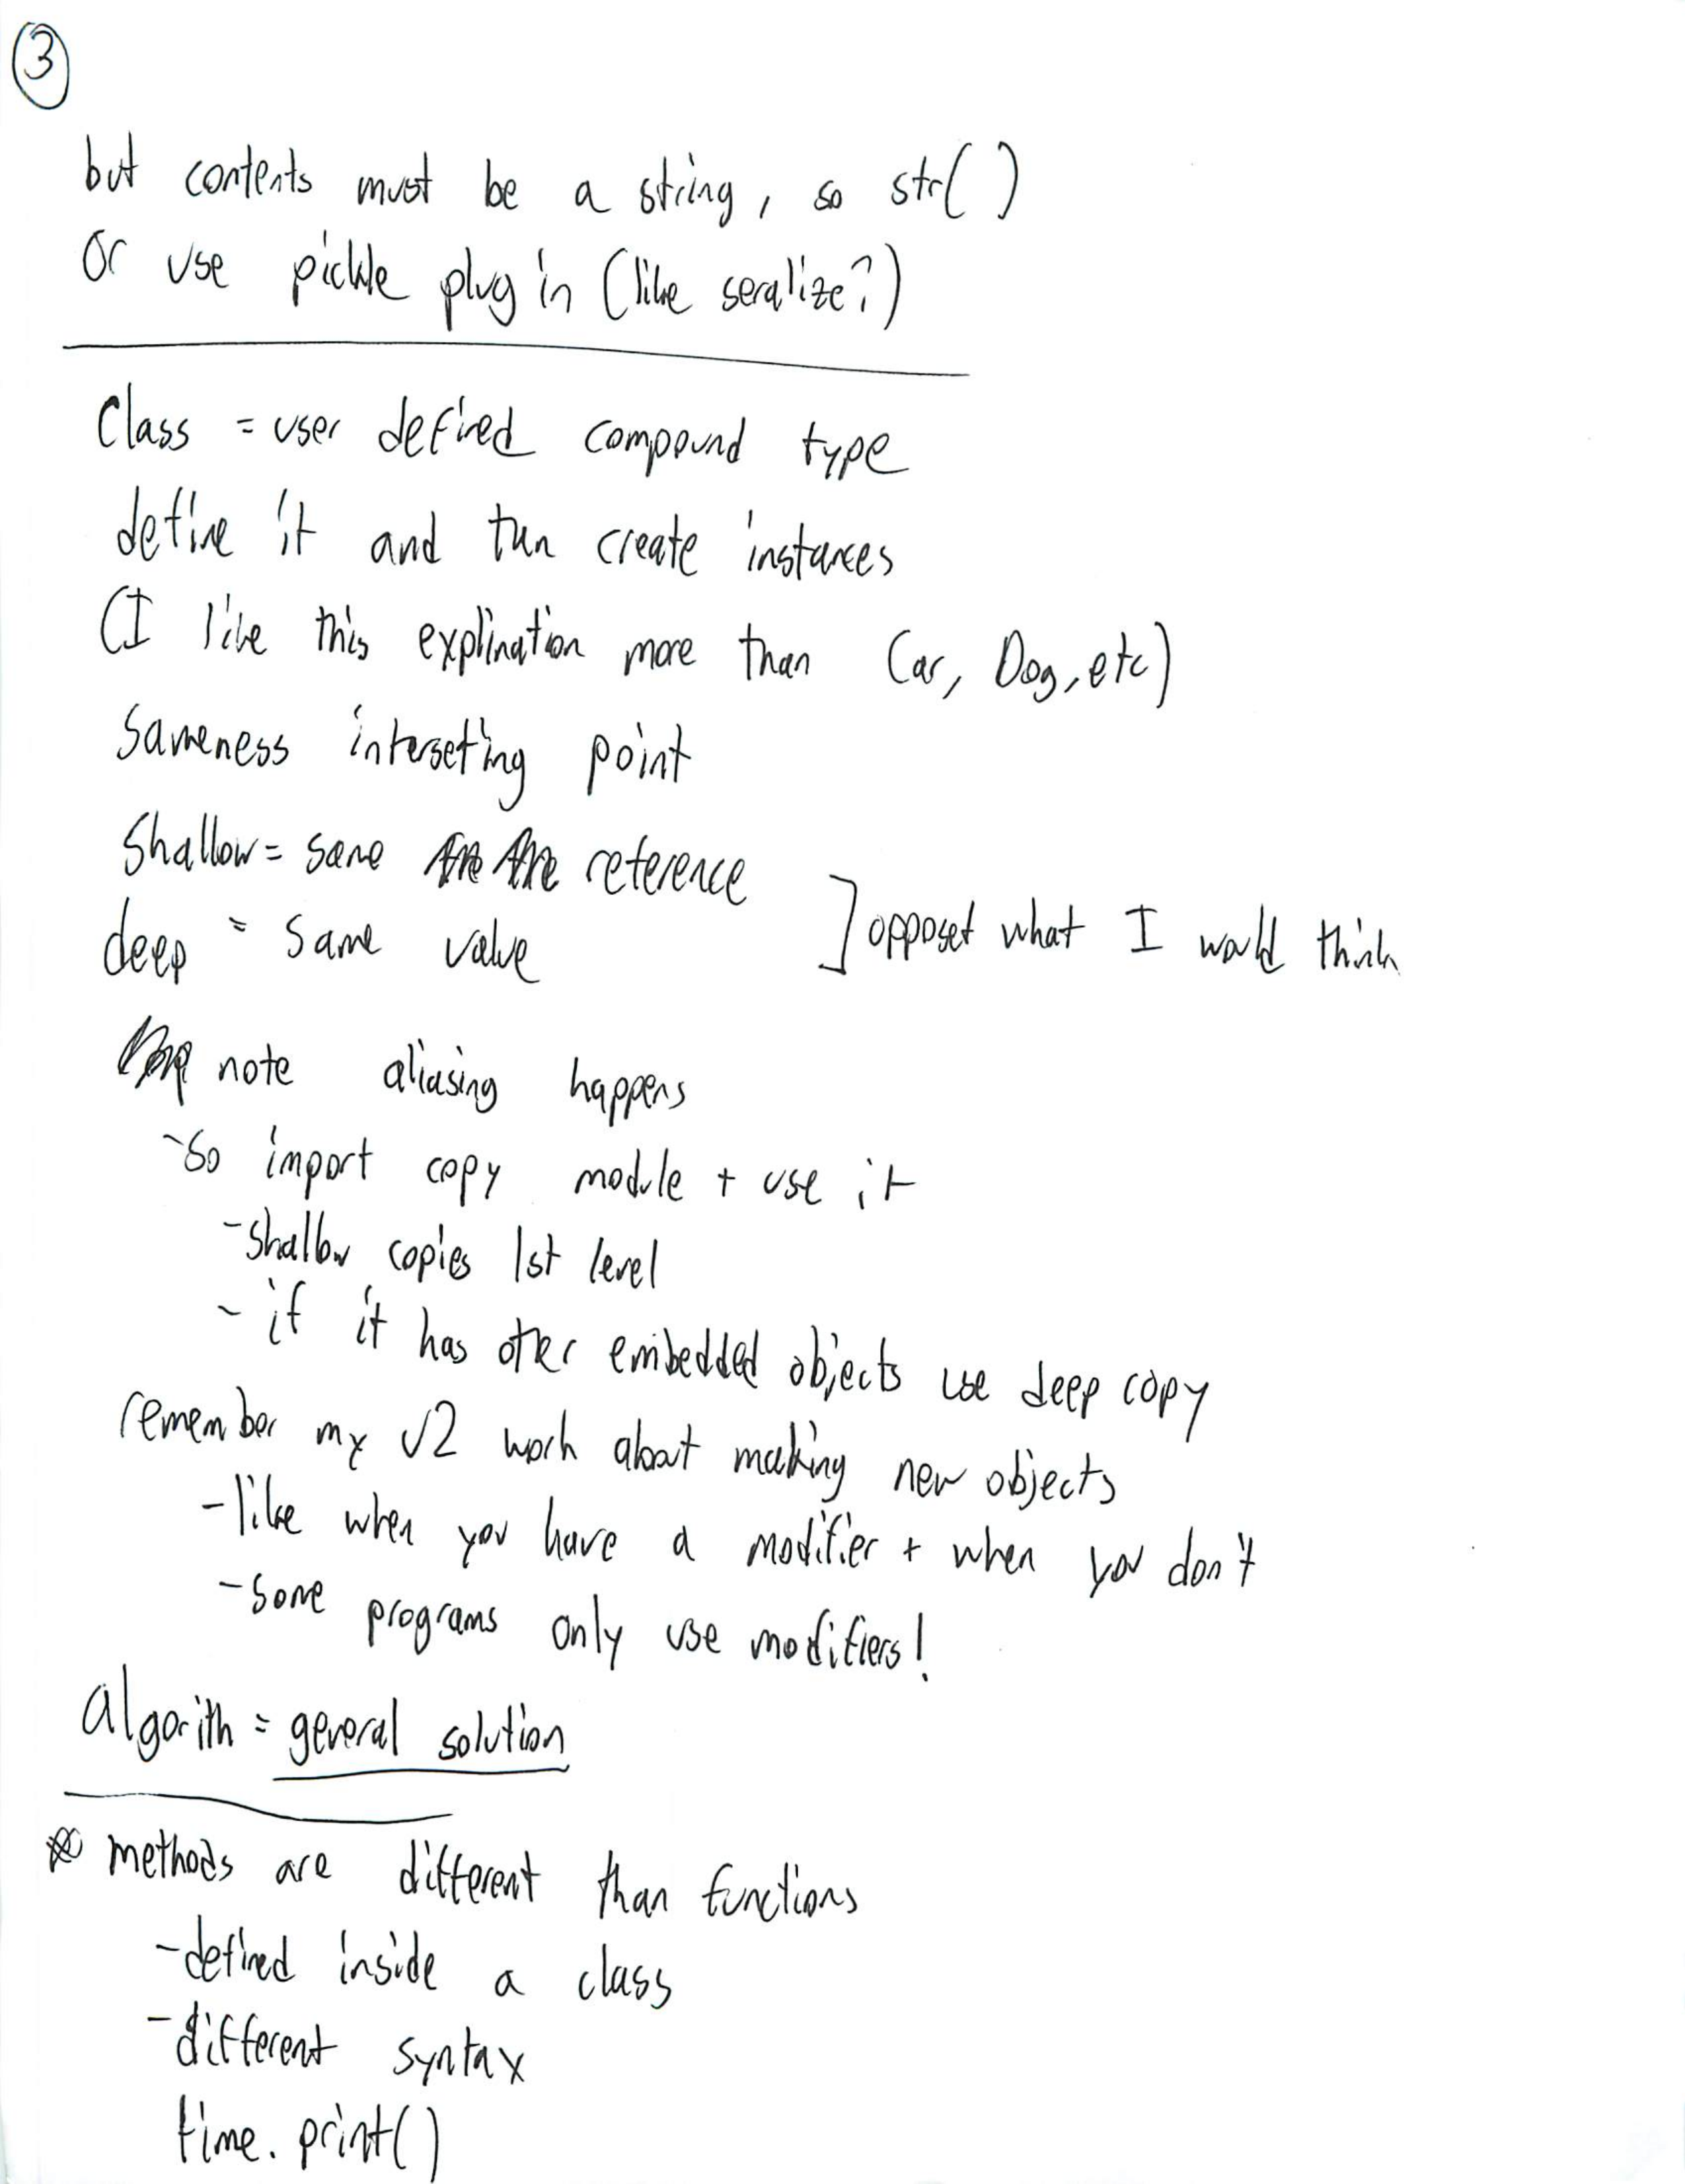 3
but contents must be a string, so str( )
or use pickle plug in (like seralize?)
Class = user defined compound type
define it and then create instances
(I like this explination more than Car, Dog, etc)
Sameness interseting point
Shallow = same reference
deep = same value ] opposet what I would think
note aliasing happens
- So import copy module + use it
- shallow copies 1st level
- if it has other embedded objects use deep copy
remember my v2 work about making new objects
- like when you have a modifier + when you don't
- some programs only use modifiers!
algorith = general solution
* methods are different than functions
- defined inside a class
- different syntax
time. print( )